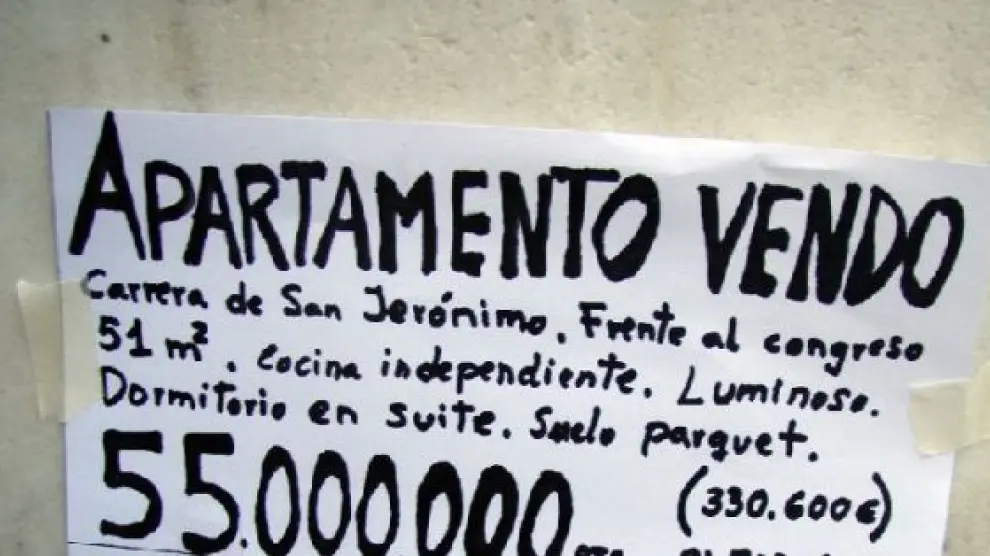 APARTAMENTO VENDO
Carrera de San Jerónimo. Frente al congreso
51 m². Cocina independiente. Luminoso.
Dormitorio en suite. Suelo parquet.
55.000.000 (330.600€)